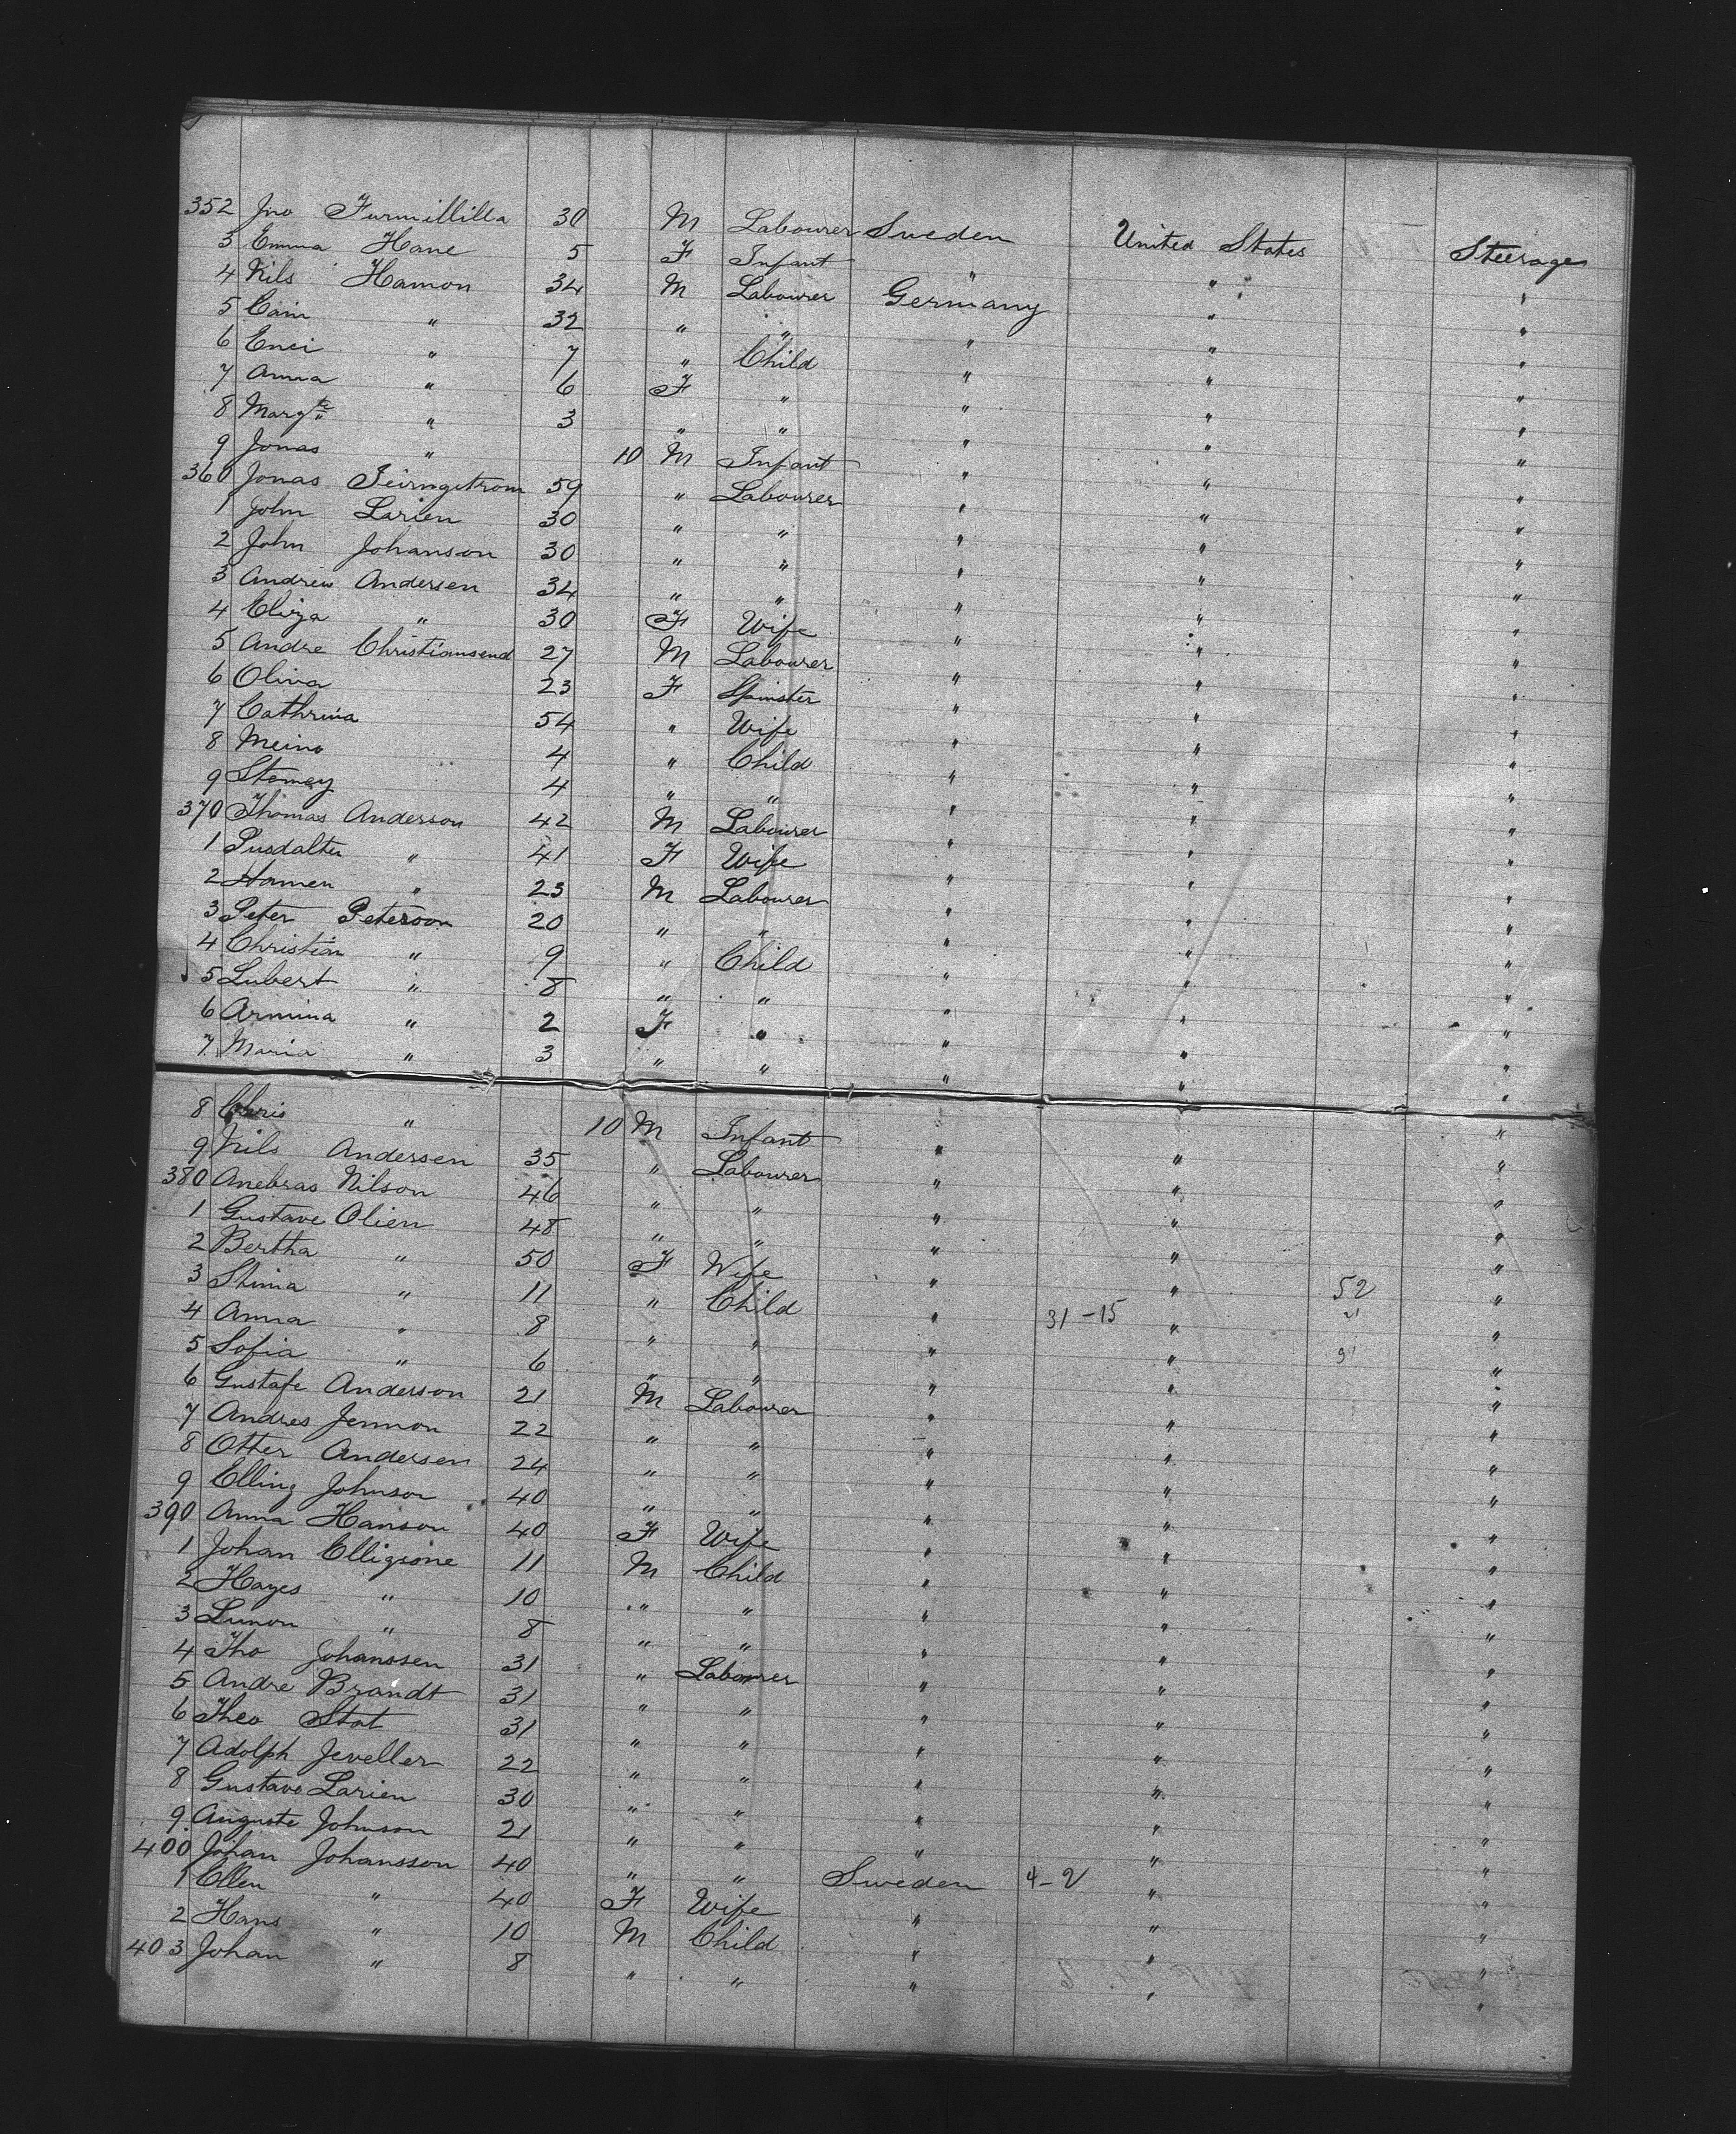 352 Jno Furmillilla 30 M Labourer Sweden United States Steerage
3 Emma Hane 5 F Infant " " "
4 Nils Hamon 34 M Labourer Germany " "
5 Cain " 32 " " " " "
6 Enei " 7 " Child " " "
7 Anna " 6 F " " " "
8 Margte " 3 " " " " "
9 Jonas " 10 M Infant " " "
360 Jonas Feirngstrom 59 " Labourer " " "
1 John Larien 30 " " " " "
2 John Johanson 30 " " " " "
3 Andrew Andersen 34 " " " " "
4 Eliza " 30 F Wife " " "
5 Andre Christiansend 27 M Labourer " " "
6 Oliva 23 F Spinster " " "
7 Cathrina 54 " Wife " " "
8 Meino 4 " Child " " "
9 Stomey 4 " " " " "
370 Thomas Anderson 42 M Labourer " " "
1 Pusdalter " 41 F Wife " " "
2 Hamen " 23 M Labourer " " "
3 Peter Peterson 20 " " " " "
4 Christian " 9 " Child " " "
5 Lubert " 8 " " " " "
6 Armina " 2 F " " " "
7 Maria " 3 " " " " "
8 Chris " 10 M Infant " " "
9 Nils Andersen 35 " Labourer " " "
380 Anebras Nilson 46 " " " " "
1 Gustave Olien 48 " " " " "
2 Bertha " 50 F Wife " " "
3 Stina " 11 " Child " " 52 "
4 Anna " 8 " " " 31-15 " 21 "
5 Sofia " 6 " " " " 31 "
6 Gustafe Anderson 21 M Labourer " " "
7 Andres Jennon 22 " " " " "
8 Otter Andersen 24 " " " " "
9 Elling Johnson 40 " " " " "
390 Anna Hanson 40 F Wife " " "
1 Johan Elligsone 11 M Child " " "
2 Hayes " 10 " " " " "
3 Lunon " 8 " " " " "
4 Tho Johanssen 31 " Labourer " " "
5 Andre Brandt 31 " " " " "
6 Theo Stot 31 " " " " "
7 Adolph Jeveller 22 " " " " "
8 Gustave Larien 30 " " " " "
9 Auguste Johnson 21 " " " " "
400 Johan Johansson 40 " " Sweden 4-2 " "
1 Ellen " 40 F Wife " " "
2 Hans " 10 M Child " " "
403 Johan " 8 " " " " "